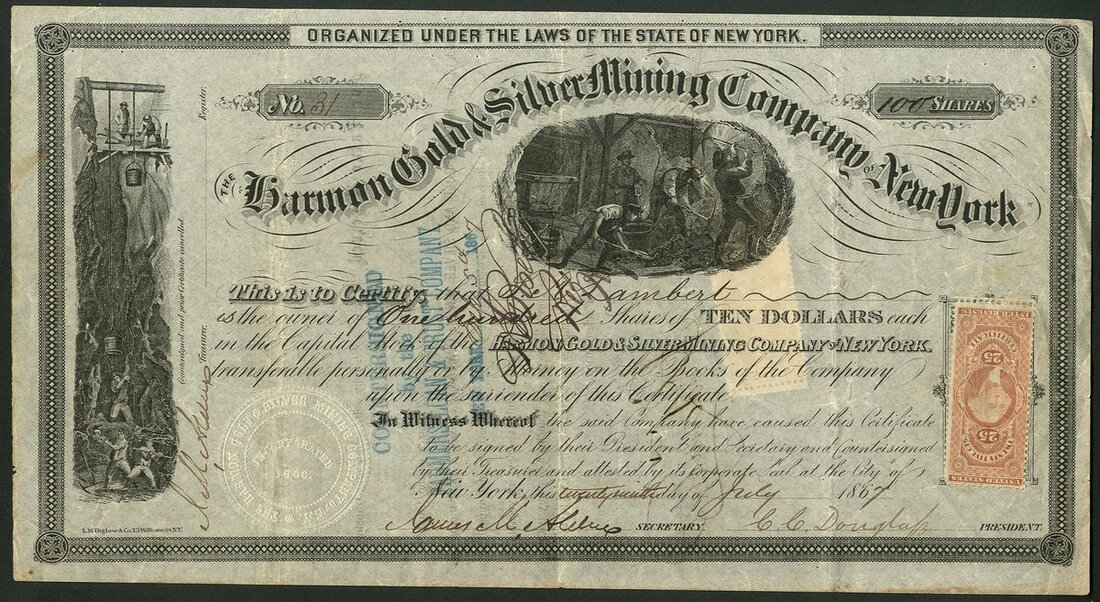 ORGANIZED UNDER THE LAWS OF THE STATE OF NEW YORK.
No. 31
100 SHARES
THE Harmon Gold & Silver Mining Company OF New York
Register.
Countersigned and prior Certificate cancelled.
Treasurer.
This is to Certify, that Lambert
is the owner of One hundred Shares of TEN DOLLARS each
in the Capital Stock of the HARMON GOLD & SILVER MINING COMPANY OF NEW YORK.
transferable personally or by Attorney on the Books of the Company
upon the surrender of this Certificate.
In Witness Whereof the said Company have caused this Certificate
to be signed by their President and Secretary and Countersigned
by their Treasurer and attested by its Corporate Seal at the City of
New York, this twenty ninth day of July 1867
SECRETARY.
C. C. Douglass PRESIDENT.
COUNTERSIGNED
by the
COMPANY
THE HARMON GOLD & SILVER MINING COMPANY
INCORPORATED
1866
N.Y.
25
25
UNITED STATES